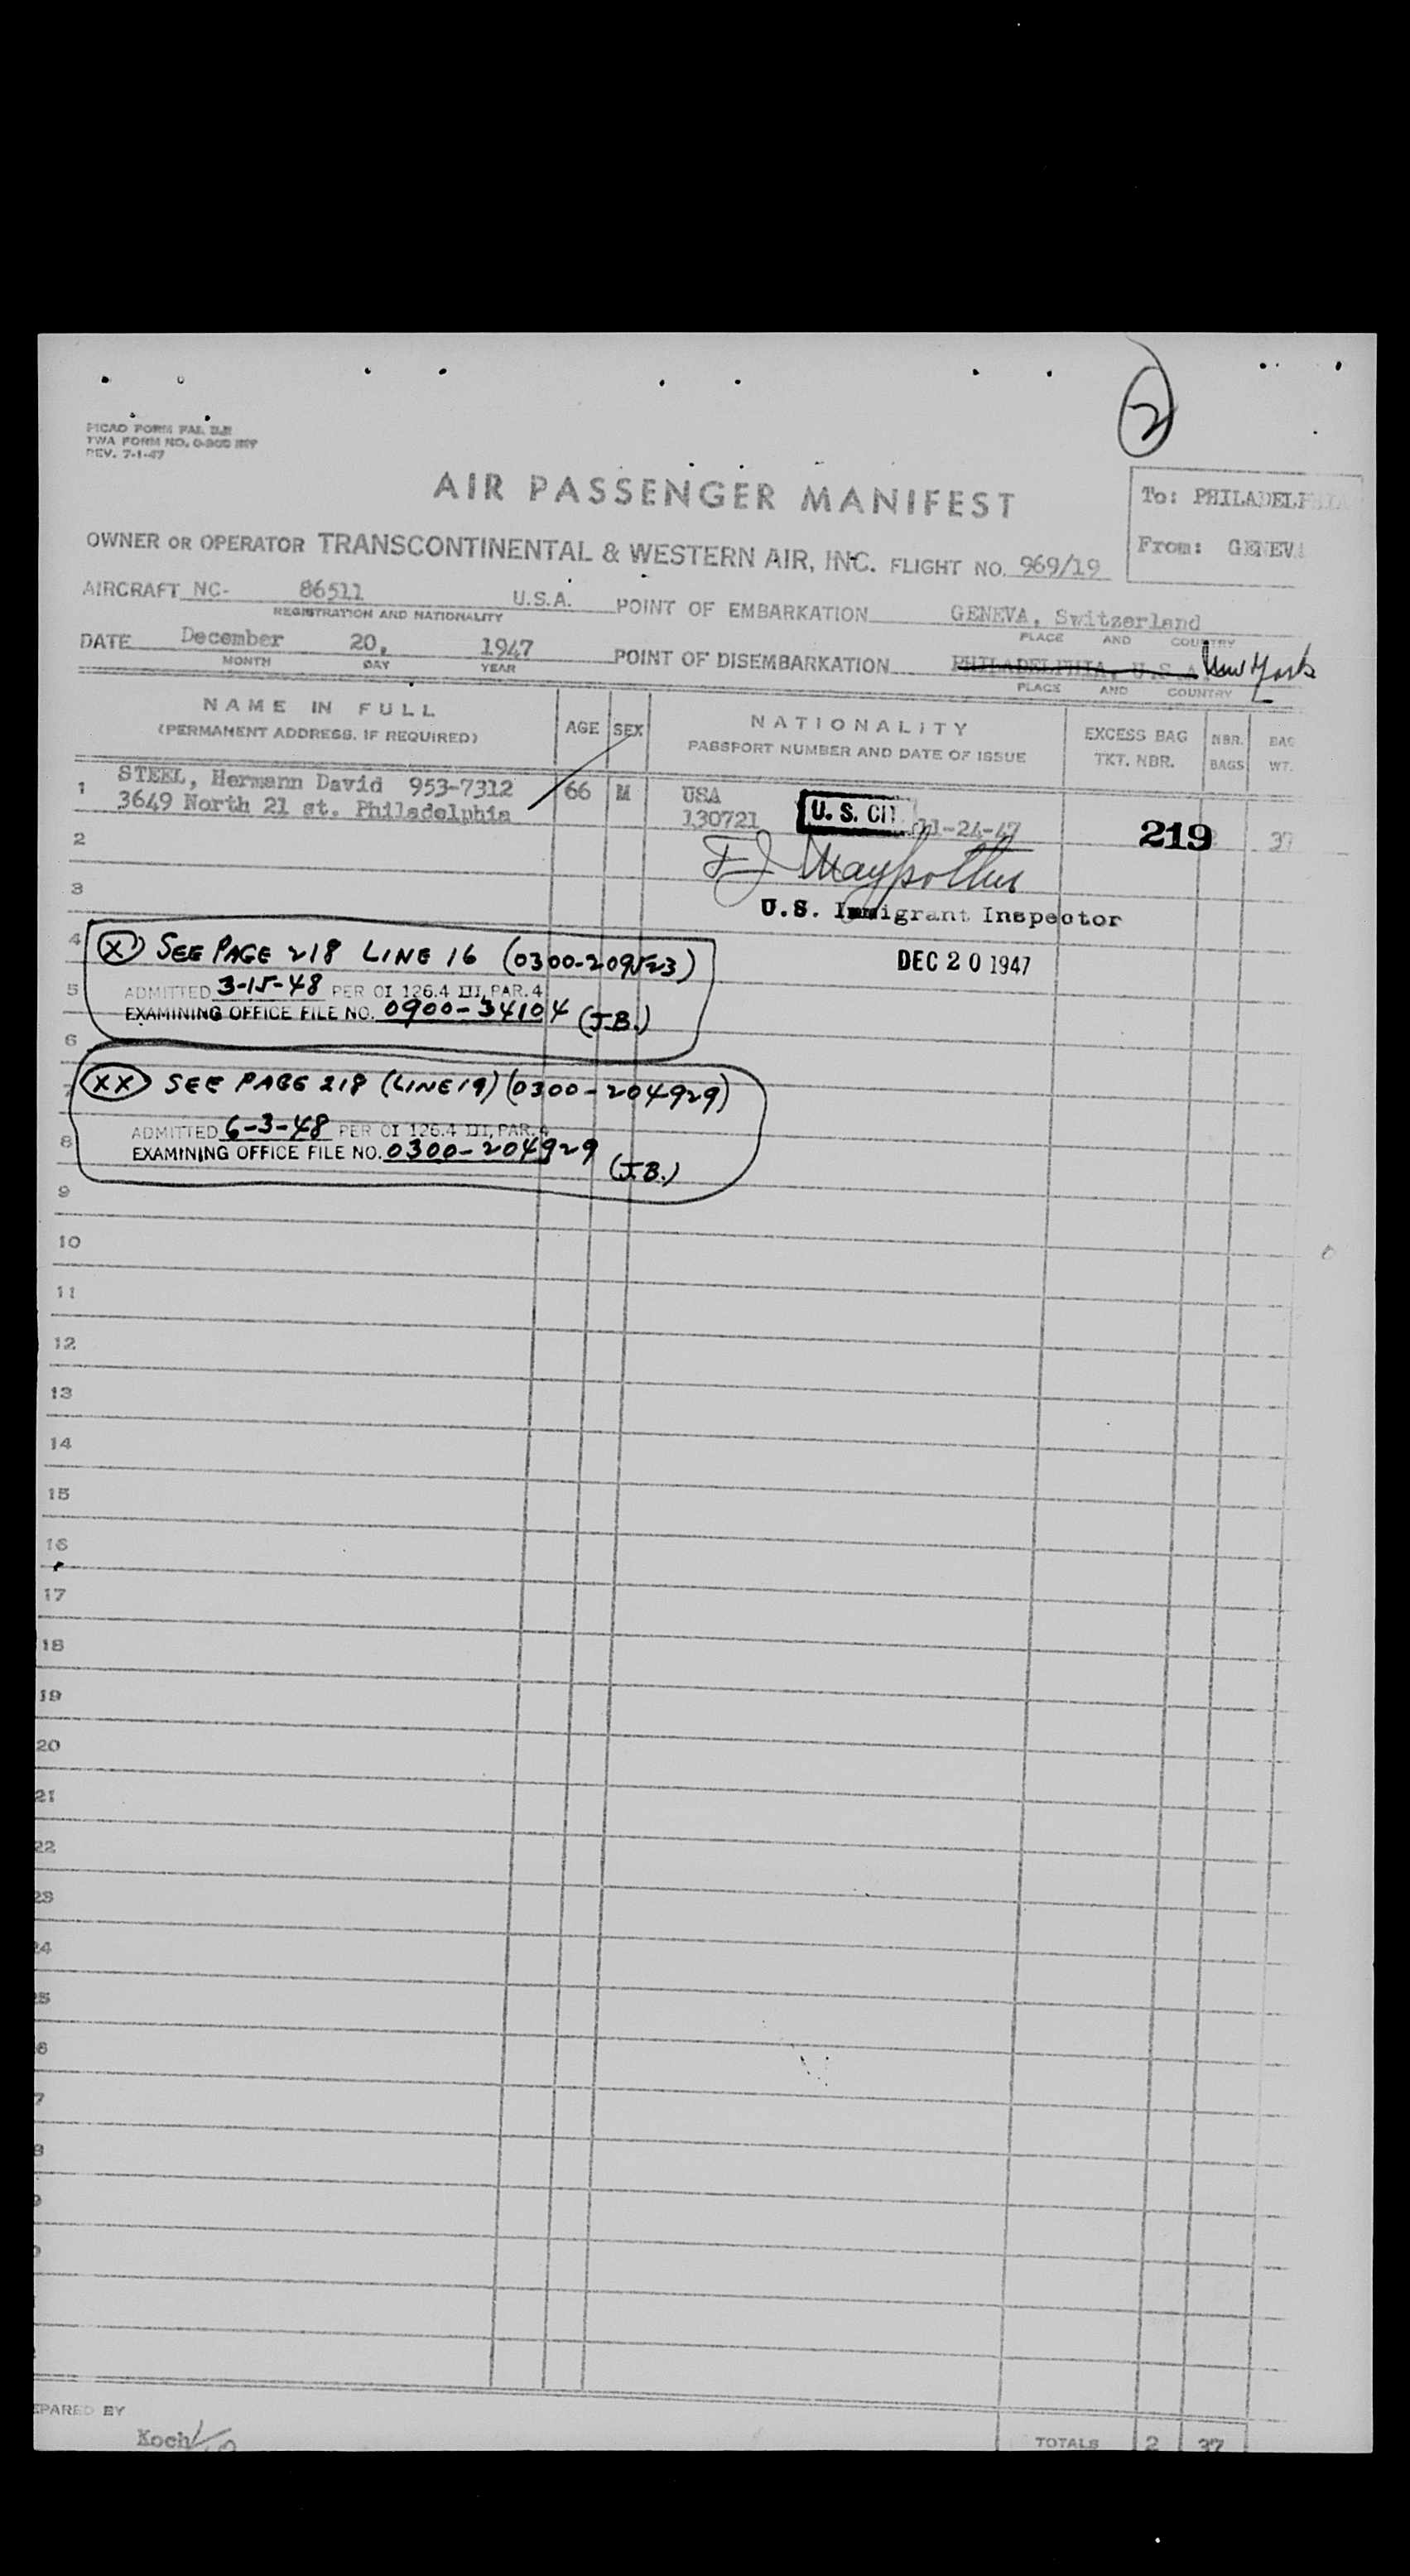 2
REV. 7-1-47
AIR PASSENGER MANIFEST
To: PHILADELPHIA
From: GENEVA
OWNER OR OPERATOR TRANSCONTINENTAL & WESTERN AIR, INC. FLIGHT NO. 969/19
AIRCRAFT NC- 86511 U.S.A. POINT OF EMBARKATION GENEVA, Switzerland
REGISTRATION AND NATIONALITY PLACE AND COUNTRY
DATE December 20, 1947 POINT OF DISEMBARKATION PHILADELPHIA, U.S.A New York
MONTH DAY YEAR PLACE AND COUNTRY
NAME IN FULL AGE SEX NATIONALITY EXCESS BAG NBR. BAG
(PERMANENT ADDRESS, IF REQUIRED) PASSPORT NUMBER AND DATE OF ISSUE TKT. NBR. BAGS WT.
1 STEEL, Hermann David 953-7312 66 M USA
3649 North 21 st. Philadelphia 130721 U.S. CIT 11-24-47
2 219 37
3
U.S. Immigrant Inspector
DEC 20 1947
4 (X) SEE PAGE 218 LINE 16 (0300-209523)
5 ADMITTED 3-15-48 PER OI 126.4 III, PAR. 4
EXAMINING OFFICE FILE NO. 0900-34104 (J.B.)
6
7 (XX) SEE PAGE 218 (LINE 19) (0300-204929)
8 ADMITTED 6-3-48 PER OI 126.4 III, PAR. 4
EXAMINING OFFICE FILE NO. 0300-204929 (J.B.)
9
10
11
12
13
14
15
16
17
18
19
20
21
22
23
24
25
6
7
8
9
EPARED BY
Koch
TOTALS 2 37